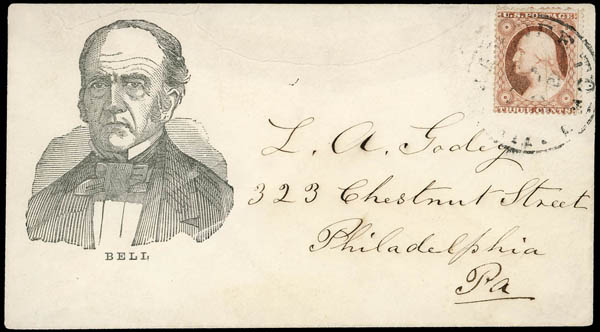 U.S. POSTAGE
THREE CENTS
BELL
L. A. Godey
323 Chestnut Street
Philadelphia
Pa